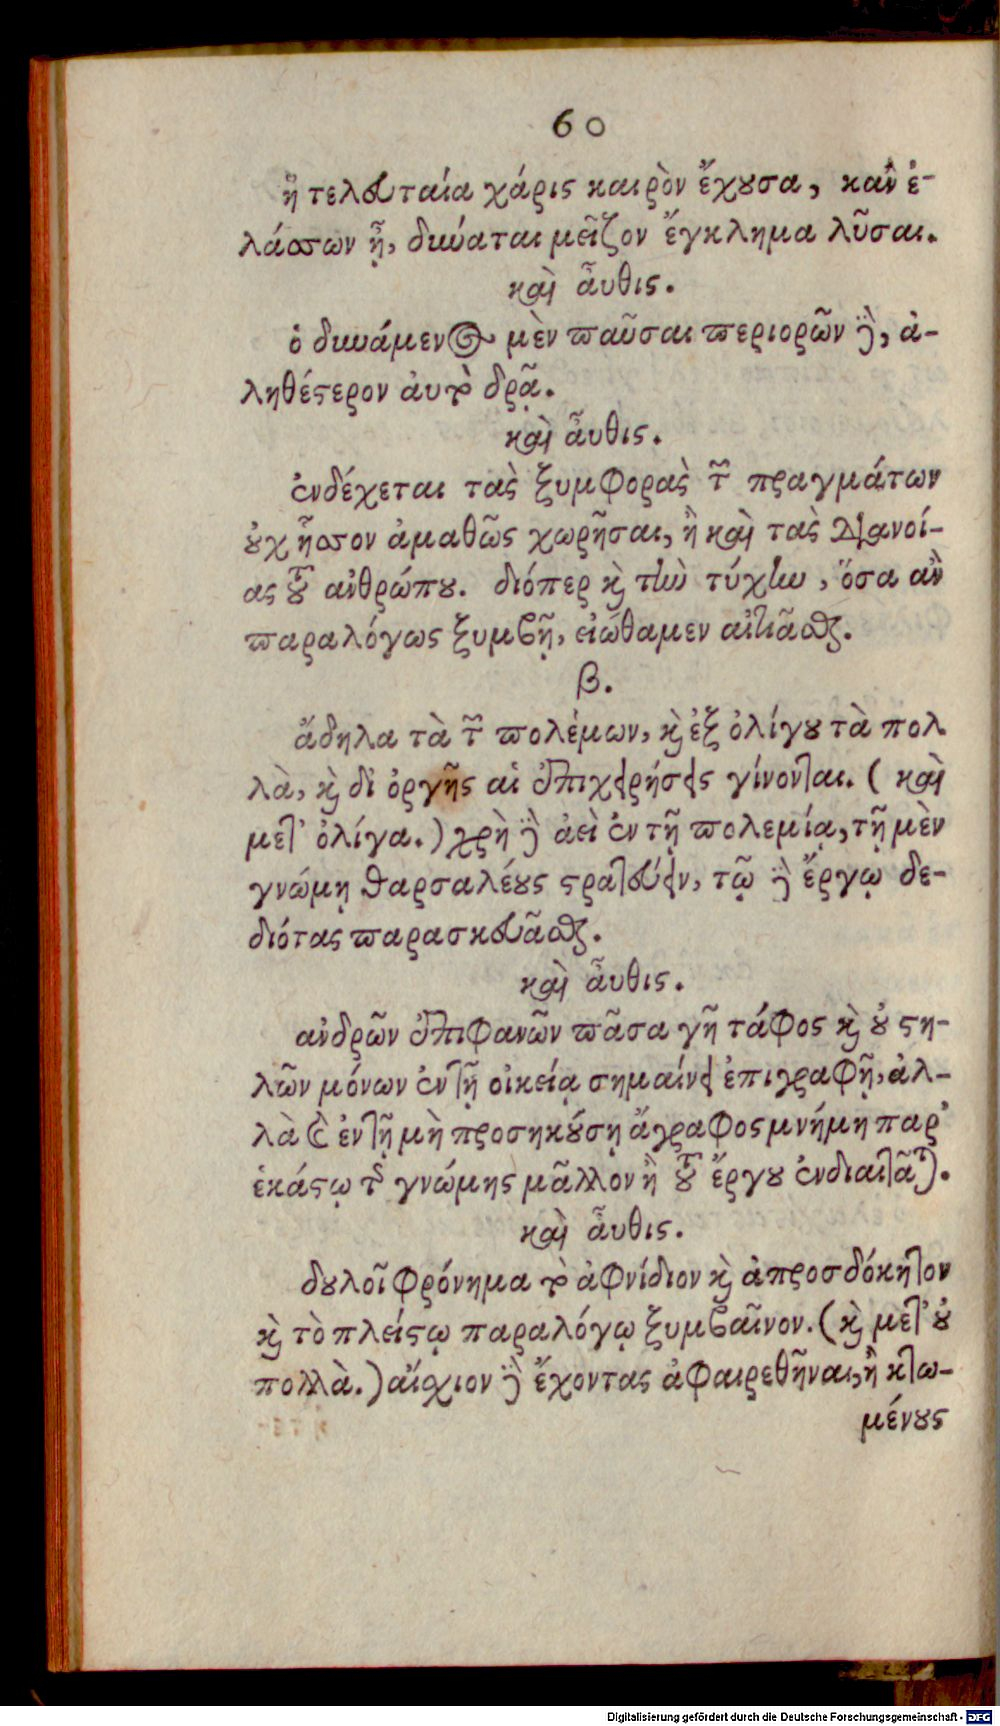 60
ἡ τελευταία χάρις καιρὸν ἔχουσα, κἂν ἐ-
λάσσων ᾖ, δύναται μεῖζον ἔγκλημα λῦσαι.
καὶ αὖθις.
ὁ δυνάμενος μὲν παῦσαι περιορῶν δὲ, ἀ-
ληθέστερον ἀυτὸ δρᾷ.
καὶ αὖθις.
ἐνδέχεται τὰς ξυμφορὰς τῶν πραγμάτων
οὐχ ἧσσον ἀμαθῶς χωρῆσαι, ἢ καὶ τὰς διανοί-
ας τοῦ ἀνθρώπου. διόπερ καὶ τὴν τύχην, ὅσα ἂν
παραλόγως ξυμβῇ, εἰώθαμεν αἰτιᾶσθαι.
β.
ἄδηλα τὰ τῶν πολέμων, καὶ ἐξ ὀλίγου τὰ πολ
λὰ, καὶ δι ὀργῆς αἱ ἐπιχειρήσεις γίνονται. (καὶ
μετ' ὀλίγα.) χρὴ δὲ ἀεὶ ἐν τῇ πολεμίᾳ, τῇ μὲν
γνώμῃ θαρσαλέους στρατεύειν, τῷ δὲ ἔργῳ δε-
διότας παρασκευᾶσθαι.
καὶ αὖθις.
ἀνδρῶν ἐπιφανῶν πᾶσα γῆ τάφος καὶ οὐ στη-
λῶν μόνων ἐν τῇ οἰκείᾳ σημαίνει ἐπιγραφῇ, ἀλ-
λὰ καὶ ἐν τῇ μὴ προσηκούσῃ ἄγραφος μνήμη παρ'
ἑκάστῳ τῆς γνώμης μᾶλλον ἢ τοῦ ἔργου ἐνδιαιτᾶται.
καὶ αὖθις.
δουλοῖ φρόνημα τὸ ἀφνίδιον καὶ ἀπροσδόκητον
καὶ τὸ πλείστῳ παραλόγῳ ξυμβαῖνον. (καὶ μετ' οὐ
πολλὰ.) αἴσχιον δὲ ἔχοντας ἀφαιρεθῆναι, ἢ κτω-
μένους
Digitalisierung gefördert durch die Deutsche Forschungsgemeinschaft - DFG